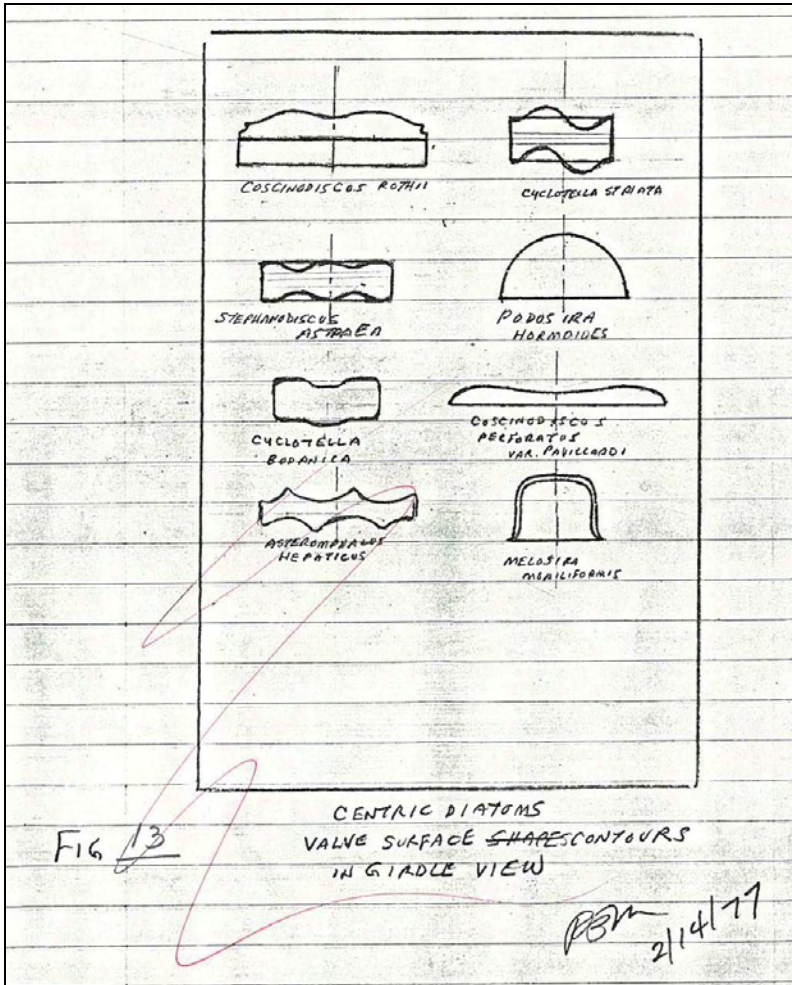 COSCINODISCOS ROTHII
CYCLOTELLA STRIATA
STEPHANODISCUS
ASTRAEA
PODOSIRA
HORMOIDES
CYCLOTELLA
BODANICA
COSCINODISCOS
PERFORATUS
VAR. PAVILLARDI
ASTEROMPHALOS
HEPATICUS
MELOSIRA
MONILIFORMIS
FIG 13
CENTRIC DIATOMS
VALVE SURFACE SHAPES CONTOURS
IN GIRDLE VIEW
2/14/77